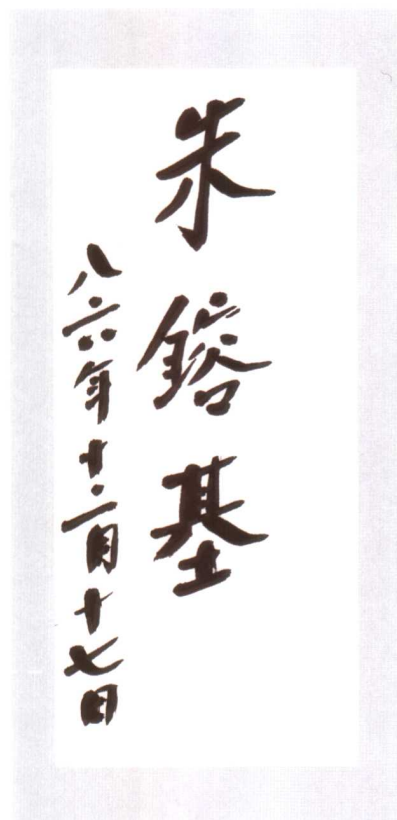 朱鎔基
八六年十二月十七日